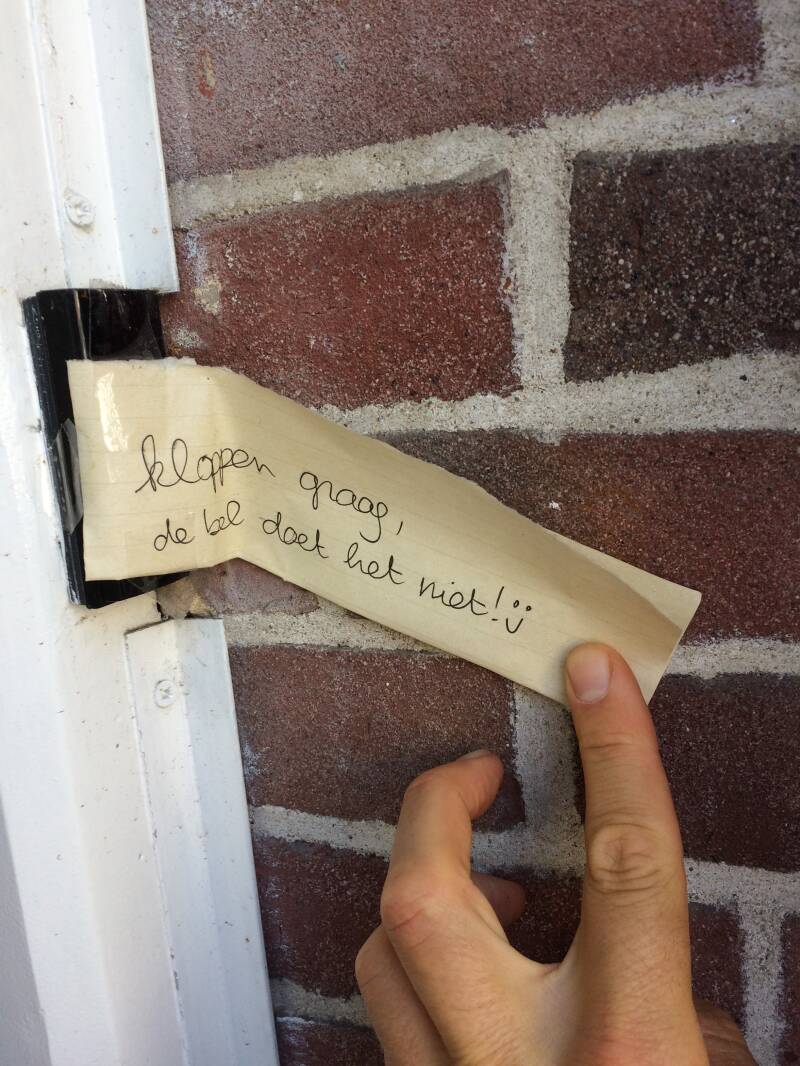 kloppen graag,
de bel doet het niet! :)